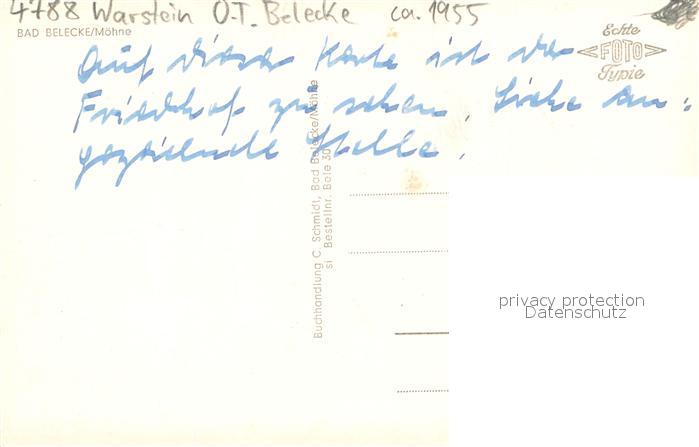 4788 Warstein O.T. Belecke ca. 1955
BAD BELECKE/Möhne
Echte
FOTO
Typie
Auf dieser Karte ist der
Friedhof zu sehen. Siehe an=
gezeichnete Stelle.
Buchhandlung C. Schmidt, Bad Belecke/Möhne
si Bestellnr. Bele 30
privacy protection
Datenschutz